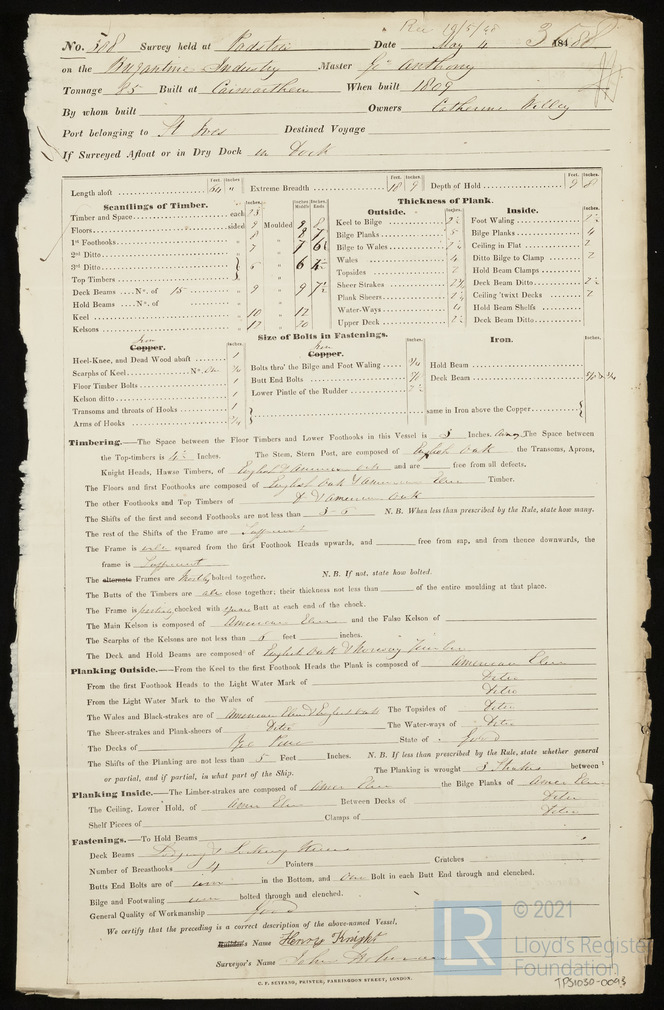 Rec 19/5/48
No. 508 Survey held at Padstow Date May 4 1848
on the Brigantine Industry Master Geo Anthony
Tonnage 85 Built at Carmarthen When built 1809
By whom built Owners Catherine Willey
Port belonging to St Ives Destined Voyage
If Surveyed Afloat or in Dry Dock in Dock
Feet. Inches. Feet. Inches. Feet. Inches.
Length aloft 64 " Extreme Breadth 18 9 Depth of Hold 9 8
Scantlings of Timber.
Inches. Inches Middle Inches Ends
Timber and Space each 23
Floors sided 9 Moulded 9 8
1st Foothooks 8 " 8 7
2nd Ditto 7 " 7 6½
3rd Ditto 6 " 6
Top Timbers
Deck Beams No. of 15 9 " 9 7½
Hold Beams No. of
Keel 10 " 12
Kelsons 12 " 20
Thickness of Plank.
Outside. Inches. Inside. Inches.
Keel to Bilge Foot Waling
Bilge Planks Bilge Planks 4
Bilge to Wales Ceiling in Flat 2
Wales 4 Ditto Bilge to Clamp 2
Topsides 2 Hold Beam Clamps
Sheer Strakes Deck Beam Ditto 2½
Plank Sheers Ceiling 'twixt Decks 2
Water-Ways 4 Hold Beam Shelfs
Upper Deck Deck Beam Ditto
Size of Bolts in Fastenings.
Iron Copper. Inches. Iron Copper. Inches. Iron. Inches.
Heel-Knee, and Dead Wood abaft 1
Scarphs of Keel No.
Floor Timber Bolts 1
Kelson ditto 1
Transoms and throats of Hooks 1
Arms of Hooks
Bolts thro' the Bilge and Foot Waling 3/4
Butt End Bolts
Lower Pintle of the Rudder
Hold Beam
Deck Beam
same in Iron above the Copper
Timbering.—The Space between the Floor Timbers and Lower Foothooks in this Vessel is 3 Inches. The Space between
the Top-timbers is Inches. The Stem, Stern Post, are composed of English Oak the Transoms, Aprons,
Knight Heads, Hawse Timbers, of English & American Oak and are free from all defects.
The Floors and first Foothooks are composed of English Oak & American Elm Timber.
The other Foothooks and Top Timbers of & American Oak
The Shifts of the first and second Foothooks are not less than 3-5 N.B. When less than prescribed by the Rule, state how many.
The rest of the Shifts of the Frame are Sufficient
The Frame is well squared from the first Foothook Heads upwards, and free from sap, and from thence downwards, the
frame is Sufficient
The alternate Frames are mostly bolted together. N.B. If not, state how bolted.
The Butts of the Timbers are are close together; their thickness not less than of the entire moulding at that place.
The Frame is partially chocked with square Butt at each end of the chock.
The Main Kelson is composed of American Elm and the False Kelson of
The Scarphs of the Kelsons are not less than 5 feet inches.
The Deck and Hold Beams are composed of English Oak & Foreign Timber
Planking Outside.—From the Keel to the first Foothook Heads the Plank is composed of American Elm
From the first Foothook Heads to the Light Water Mark of Ditto
From the Light Water Mark to the Wales of Ditto
The Wales and Black-strakes are of American Elm & English Oak The Topsides of Ditto
The Sheer-strakes and Plank-sheers of Ditto The Water-ways of Ditto
The Decks of Yel Pine State of Good
The Shifts of the Planking are not less than 5 Feet Inches. N.B. If less than prescribed by the Rule, state whether general
or partial, and if partial, in what part of the Ship. The Planking is wrought 3 Strakes between
Planking Inside.—The Limber-strakes are composed of Amer Elm the Bilge Planks of Amer Elm
The Ceiling, Lower Hold, of Amer Elm Between Decks of Ditto
Shelf Pieces of Clamps of Ditto
Fastenings.—To Hold Beams
Deck Beams Lodging &
Number of Breasthooks 4 Pointers Crutches
Butts End Bolts are of iron in the Bottom, and One Bolt in each Butt End through and clenched.
Bilge and Footwaling iron bolted through and clenched.
General Quality of Workmanship Good
We certify that the preceding is a correct description of the above-named Vessel.
Builder's Name Henry Knight
Surveyor's Name John
C. F. SEYFANG, PRINTER, FARRINGDON STREET, LONDON.
LR
© 2021
Lloyd's Register
Foundation
TPS1050-0093